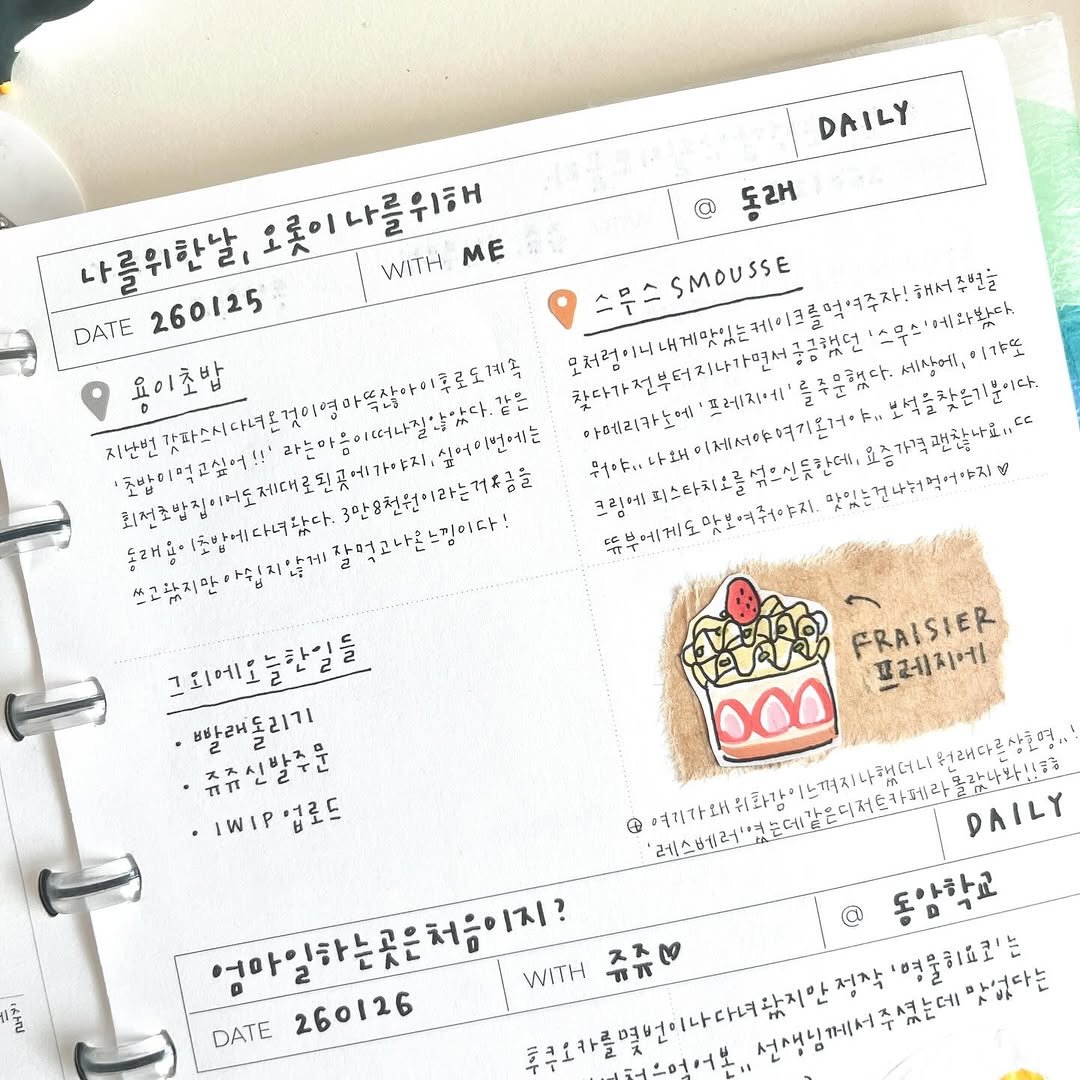 DAILY
나를위한날, 오롯이나를위해
DATE 260125
WITH ME
@ 동래
용이초밥
지난번 갓파스시다녀온것이영마뜩잖아이후로도계속
'초밥이먹고싶어!!' 라는마음이떠나질않았다. 같은
회전초밥집이어도제대로된곳에가야지, 싶어이번에는
동래용이초밥에다녀왔다. 3만8천원이라는거금을
쓰고왔지만아쉽지않게 잘먹고나온느낌이다!
그외에오늘한일들
• 빨래돌리기
• 쥬쥬신발주문
• 1WIP 업로드
스무스 SMOUSSE
모처럼이니내게맛있는케이크를먹여주자! 해서주변을
찾다가전부터지나가면서궁금했던 '스무스'에와봤다.
아메리카노에 '프레지에'를주문했다. 세상에, 이갸또
뭐야,, 나왜이제서야여기온거야,, 보석을찾은기분이다.
크림에 피스타치오를섞으신듯한데, 요즘가격괜찮나요,,ㄷㄷ
뜌부에게도맛보여줘야지. 맛있는건나눠먹어야지♡
FRAISIER
프레지에
⊕ 여기가왜위화감이느껴지나했더니원래다른상호명,,!
'레스베러'였는데같은디저트카페라몰랐나봐!!ㅎㅎ
DAILY
엄마일하는곳은처음이지?
DATE 260126
WITH 쥬쥬♡
@ 동암학교
후쿠오카를몇번이나다녀왔지만정작 '명물히요코'는
처음먹어본,, 선생님께서주셨는데맛없다는
제출